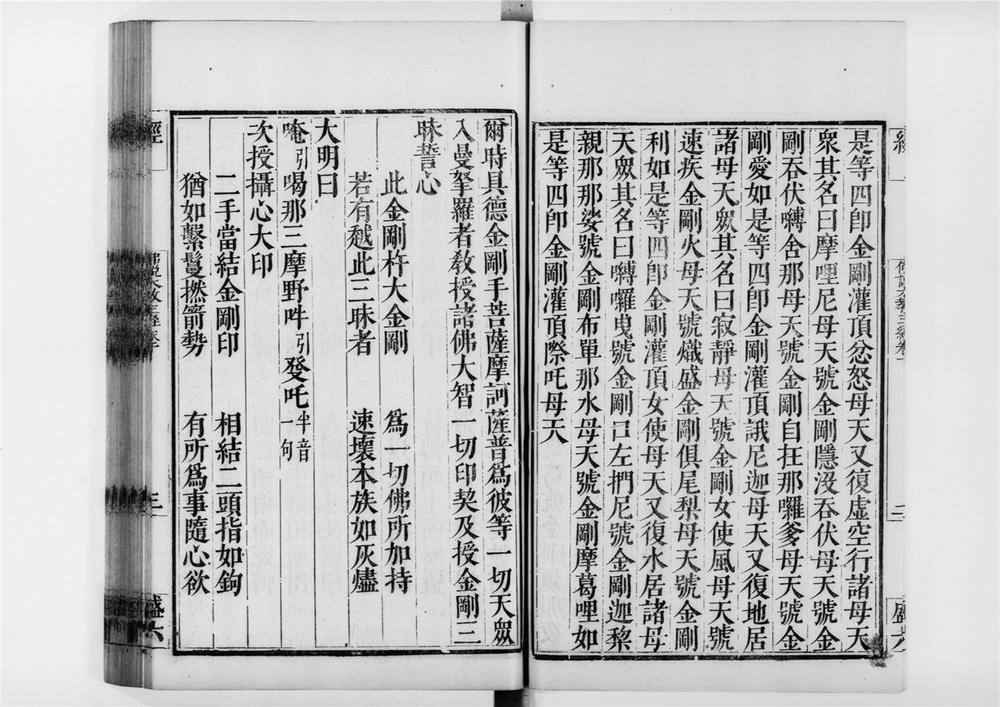 是等四卽金剛灌頂忿怒母天又復虛空行諸母天
衆其名曰摩哩尼母天號金剛隱沒吞伏母天號金
剛吞伏嚩舍那母天號金剛自在那囉爹母天號金
剛愛如是等四卽金剛灌頂誐尼迦母天又復地居
諸母天衆其名曰寂靜母天號金剛女使風母天號
速疾金剛火母天號熾盛金剛俱尾梨母天號金剛
利如是等四卽金剛灌頂女使母天又復水居諸母
天衆其名曰嚩囉曳號金剛口左捫尼號金剛迦黎
親那那娑號金剛布單那水母天號金剛摩葛哩如
是等四卽金剛灌頂際吒母天
爾時具德金剛手菩薩摩訶薩普爲彼等一切天衆
入曼拏羅者敎授諸佛大智一切印契及授金剛三
昧誓心
此金剛杵大金剛 爲一切佛所加持
若有越此三昧者 速壞本族如灰燼
大明曰
唵引喝那三摩野吽引發吒半音一句
次授攝心大印
二手當結金剛印 相結二頭指如鉤
猶如繫鬘撚箭勢 有所爲事隨心欲
經
三
盛六